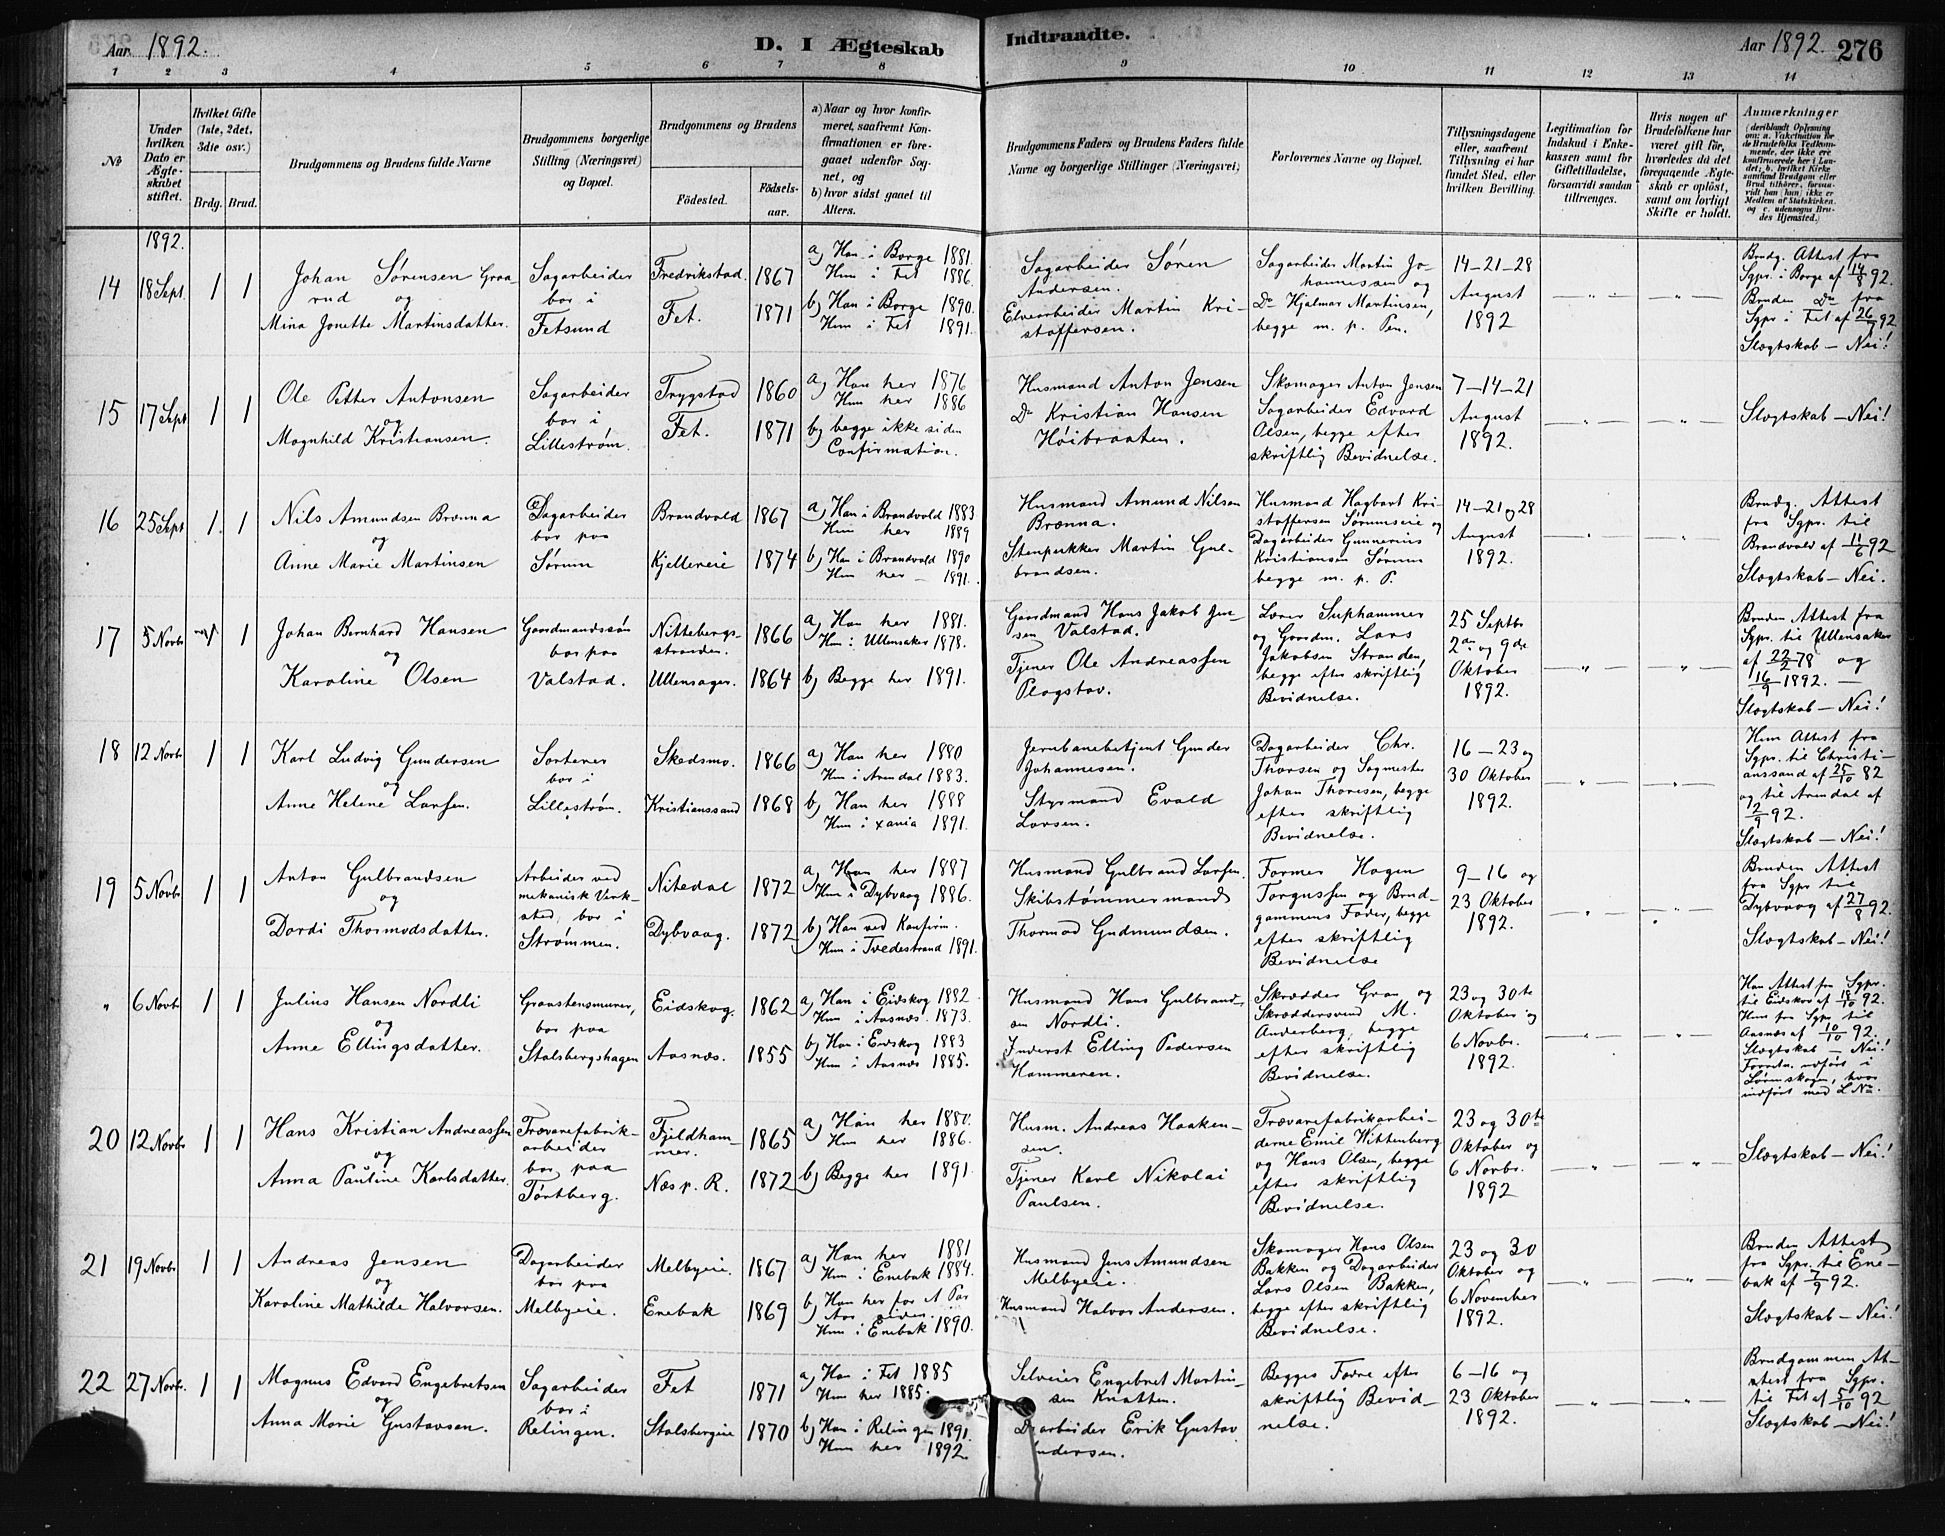 Aar 1892.
D. I Ægteskab
Indtraadte.
Aar 1892.
276
1 2 3 4 5 6 7 8 9 10 11 12 13 14
No
Under hvilken Dato er Ægteskabet stiftet.
Hvilket Gifte (1ste, 2det, 3die osv.)
Brdg. Brud.
Brudgommens og Brudens fulde Navne
Brudgommens borgerlige Stilling (Næringsvei) og Bopæl.
Brudgommens og Brudens
Fødested.
Fødselsaar.
a) Naar og hvor konfirmeret, saafremt Konfirmationen er foregaaet udenfor Sognet, og
b) hvor sidst gaaet til Alters.
Brudgommens Faders og Brudens Faders fulde Navne og borgerlige Stillinger (Næringsvei)
Forlovernes Navne og Bopæl.
Tillysningsdagene eller, saafremt Tillysning ei har fundet Sted, efter hvilken Bevilling.
Legitimation for Indskud i Enkekassen samt for Giftetilladelse, forsaavidt saadan tiltrænges.
Hvis nogen af Brudefolkene har været gift før, hvorledes da det foregaaende Ægteskab er opløst, samt om lovligt Skifte er holdt.
Anmærkninger
(deriblandt Oplysning om: a. Vakcination for de Brudefolks Vedkommende, der ikke ere konfirmerede her i Landet; b. hvilket Kirkesamfund Brudgom eller Brud tilhører, forsaavidt han (hun) ikke er Medlem af Statskirken, og c. udensogns Brudes Hjemsted.)
1892.
14 18 Sept. 1 1
Johan Sørensen Graarud
og
Mina Jonette Martinsdatter.
Sagarbeider
bor i
Fetsund
Fredrikstad. 1867
Fet. 1871
a) Han i Borge 1881.
Hun i Fet 1886.
b) Han i Borge 1890.
Hun i Fet 1891.
Sagarbeider Søren
Andersen.
Elvearbeider Martin Kristoffersen.
Sagarbeider Martin Johannessen og
Do Hjalmar Martinsen,
begge m. p. Pen.
14-21-28
August
1892
Brudg. Attest fra
Sgpr. i Borge af 14/8 92.
Bruden Do fra
Sgpr. i Fet af 26/7 92
Slægtskab - Nei!
15 17 Sept 1 1
Ole Petter Antonsen
og
Magnhild Kristiansen.
Sagarbeider
bor i
Lillestrøm.
Trygstad 1860
Fet. 1871
a) Han her 1876
Hun her 1886
b) begge ikke siden
Confirmation.
Husmand Anton Jensen
Do Kristian Hansen
Høibraaten.
Skomager Anton Jensen
Sagarbeider Edvard
Olsen, begge efter
skriftlig Bevidnelse.
7-14-21
August
1892.
Slægtskab - Nei!
16 25 Sept 1. 1
Nils Amundsen Brænna
og
Anne Marie Martinsen
Dagarbeider
bor paa
Sørum
Brandvold 1867
Kjellereie 1874
a) Han i Brandvold 1883
Hun her 1889
b) Han i Brandvold 1890
Hun her - 1891.
Husmand Amund Nilsen
Brænna.
Stenpukker Martin Gulbrandsen.
Husmand Hagbart Kristoffersen Sørumseie og
Dagarbeider Gunnerius
Kristiansen Sørum
begge m. p. P.
14-21 og 28
August
1892.
Brudg. Attest
fra Sgpr. til
Brandvold af 11/6 92
Slægtskab - Nei.
17 5 Novbr 1
Johan Bernhard Hansen
og
Karoline Olsen
Gaardmandssøn
bor paa
Valstad.
Nittebergsstranden. 1866
Ullensager. 1864
a) Han her 1881.
Hun i Ullensaker 1878.
b) Begge her 1891.
Gaardmand Hans Jakob Jensen Valstad.
Tjener Ole Andreassen
Plogstav.
Lærer Suphammer
og Gaardm. Lars
Jakobsen Stranden,
begge efter skriftlig
Bevidnelse.
25 Septbr
2den og 9de
Oktober
1892.
Bruden Attest fra
Sgpr. til Ullensaker
af 22/2 78 og
16/9 1892. -
Slægtskab - Nei!
18 12 Novbr 1 1
Karl Ludvig Gundersen
og
Anne Helene Larsen.
Sorterer
bor i
Lillestrøm.
Skedsmo. 1866
Kristianssand 1868
a) Han her 1880
Hun i Arendal 1883.
b) Han her 1888
Hun i Xania 1891.
Jernbanebetjent Gunder
Johannesen.
Styrmand Evald
Larsen.
Dagarbeider Chr.
Thorsen og Sagmester
Johan Thoresen, begge
efter skriftlig
Bevidnelse.
16-23 og
30 Oktober
1892.
Hun Attest fra
Sgpr. til Christianssand af 25/10 82
og til Arendal af
2/9 92.
Slægtskab - Nei!
19 5 Novbr 1 1
Anton Gulbrandsen
og
Dordi Thormodsdatter.
Arbeider ved
mekanisk Verksted, bor i
Strømmen.
Nitedal 1872
Dybvaag. 1872
a) Han her 1887
Hun i Dybvaag 1886.
b) Han ved Konfirm.
Hun i Tvedestrand 1891.
Husmand Gulbrand Larsen.
Skibstømmermand
Thormod Gudmundsen.
Former Hagen
Torgussen og Brudgommens Fader, begge
efter skriftlig
Bevidnelse
9-16 og
23 Oktober
1892.
Bruden Attest
fra Sgpr til
Dybvaag af 27/8 92.
Slægtskab - Nei!
" 6 Novbr 1 1
Julius Hansen Nordli
og
Anne Ellingsdatter.
Graastensmurer,
bor paa
Stalsbergshagen
Eidskog. 1862
Aasnæs. 1855
a) Han i Eidskog 1882
Hun i Aasnæs. 1873.
b) Han i Eidskog 1883
Hun i Aasnæs 1885.
Husmand Hans Gulbrandsen Nordli.
Inderst Elling Pedersen
Hammeren.
Skrædder Gran og
Skræddersvend M.
Anderberg, begge
efter skriftlig
Bevidnelse.
23 og 30te
Oktober og
6 Novbr.
1892.
Han Attest fra Sgpr.
til Eidskov af 18/10 92.
Hun fra Sgpr til
Aasnæs af 10/10 92.
Slægtskab - Nei!
Forretn. udført i
Lørenskogen, hvor
indført med L No
20 12 Novbr 1 1
Hans Kristian Andreassen
og
Anna Pauline Karlsdatter.
Trævarefabrikarbeider
bor paa
Tørtberg.
Fjeldhammer. 1865
Næs p. R. 1872
a) Han her 1880.
Hun her 1886.
b) Begge her 1891.
Husm. Andreas Haakensen.
Tjener Karl Nikolai
Paulsen.
Trævarefabrikarbeiderne Emil Wittenberg
og Hans Olsen, begge
efter skriftlig
Bevidnelse.
23 og 30te
Oktober og
6 Novbr.
1892
Slægtskab - Nei!
21 19 Novbr 1 1
Andreas Jensen
og
Karoline Mathilde Halvorsen.
Dagarbeider
bor paa
Melbyeie.
Melbyeie. 1867
Enebak 1869
a) Han her 1881
Hun i Enebak 1884.
b) Han her for et Par
Aar siden.
Hun i Enebak 1890.
Husmand Jens Amundsen
Melbyeie.
Husmand Halvor Andersen.
Skomager Hans Olsen
Bakken og Dagarbeider
Lars Olsen Bakken,
begge efter skriftlig
Bevidnelse.
23 og 30
Oktober og
6 November
1892.
Bruden Attest
fra Sgpr. til Enebak af 7/9 92.
Slægtskab - Nei!
22 27 Novbr. 1 1
Magnus Edvard Engebretsen
og
Anna Marie Gustavsen.
Sagarbeider
bor i
Relingen.
Fet 1871
Stalsbergeie 1870
a) Han i Fet 1885
Hun her 1885.
b) Han i Relingen 1891.
Hun her 1892.
Selveier Engebret Martinsen Knatten.
arbeider Erik Gustav
Andersen.
Begges Fædre efter
skriftlig Bevidnelse.
6-16 og
23 Oktober
1892.
Brudgommen Attest fra Sgpr.
til Fet af 5/10 92
Slægtskab - Nei!